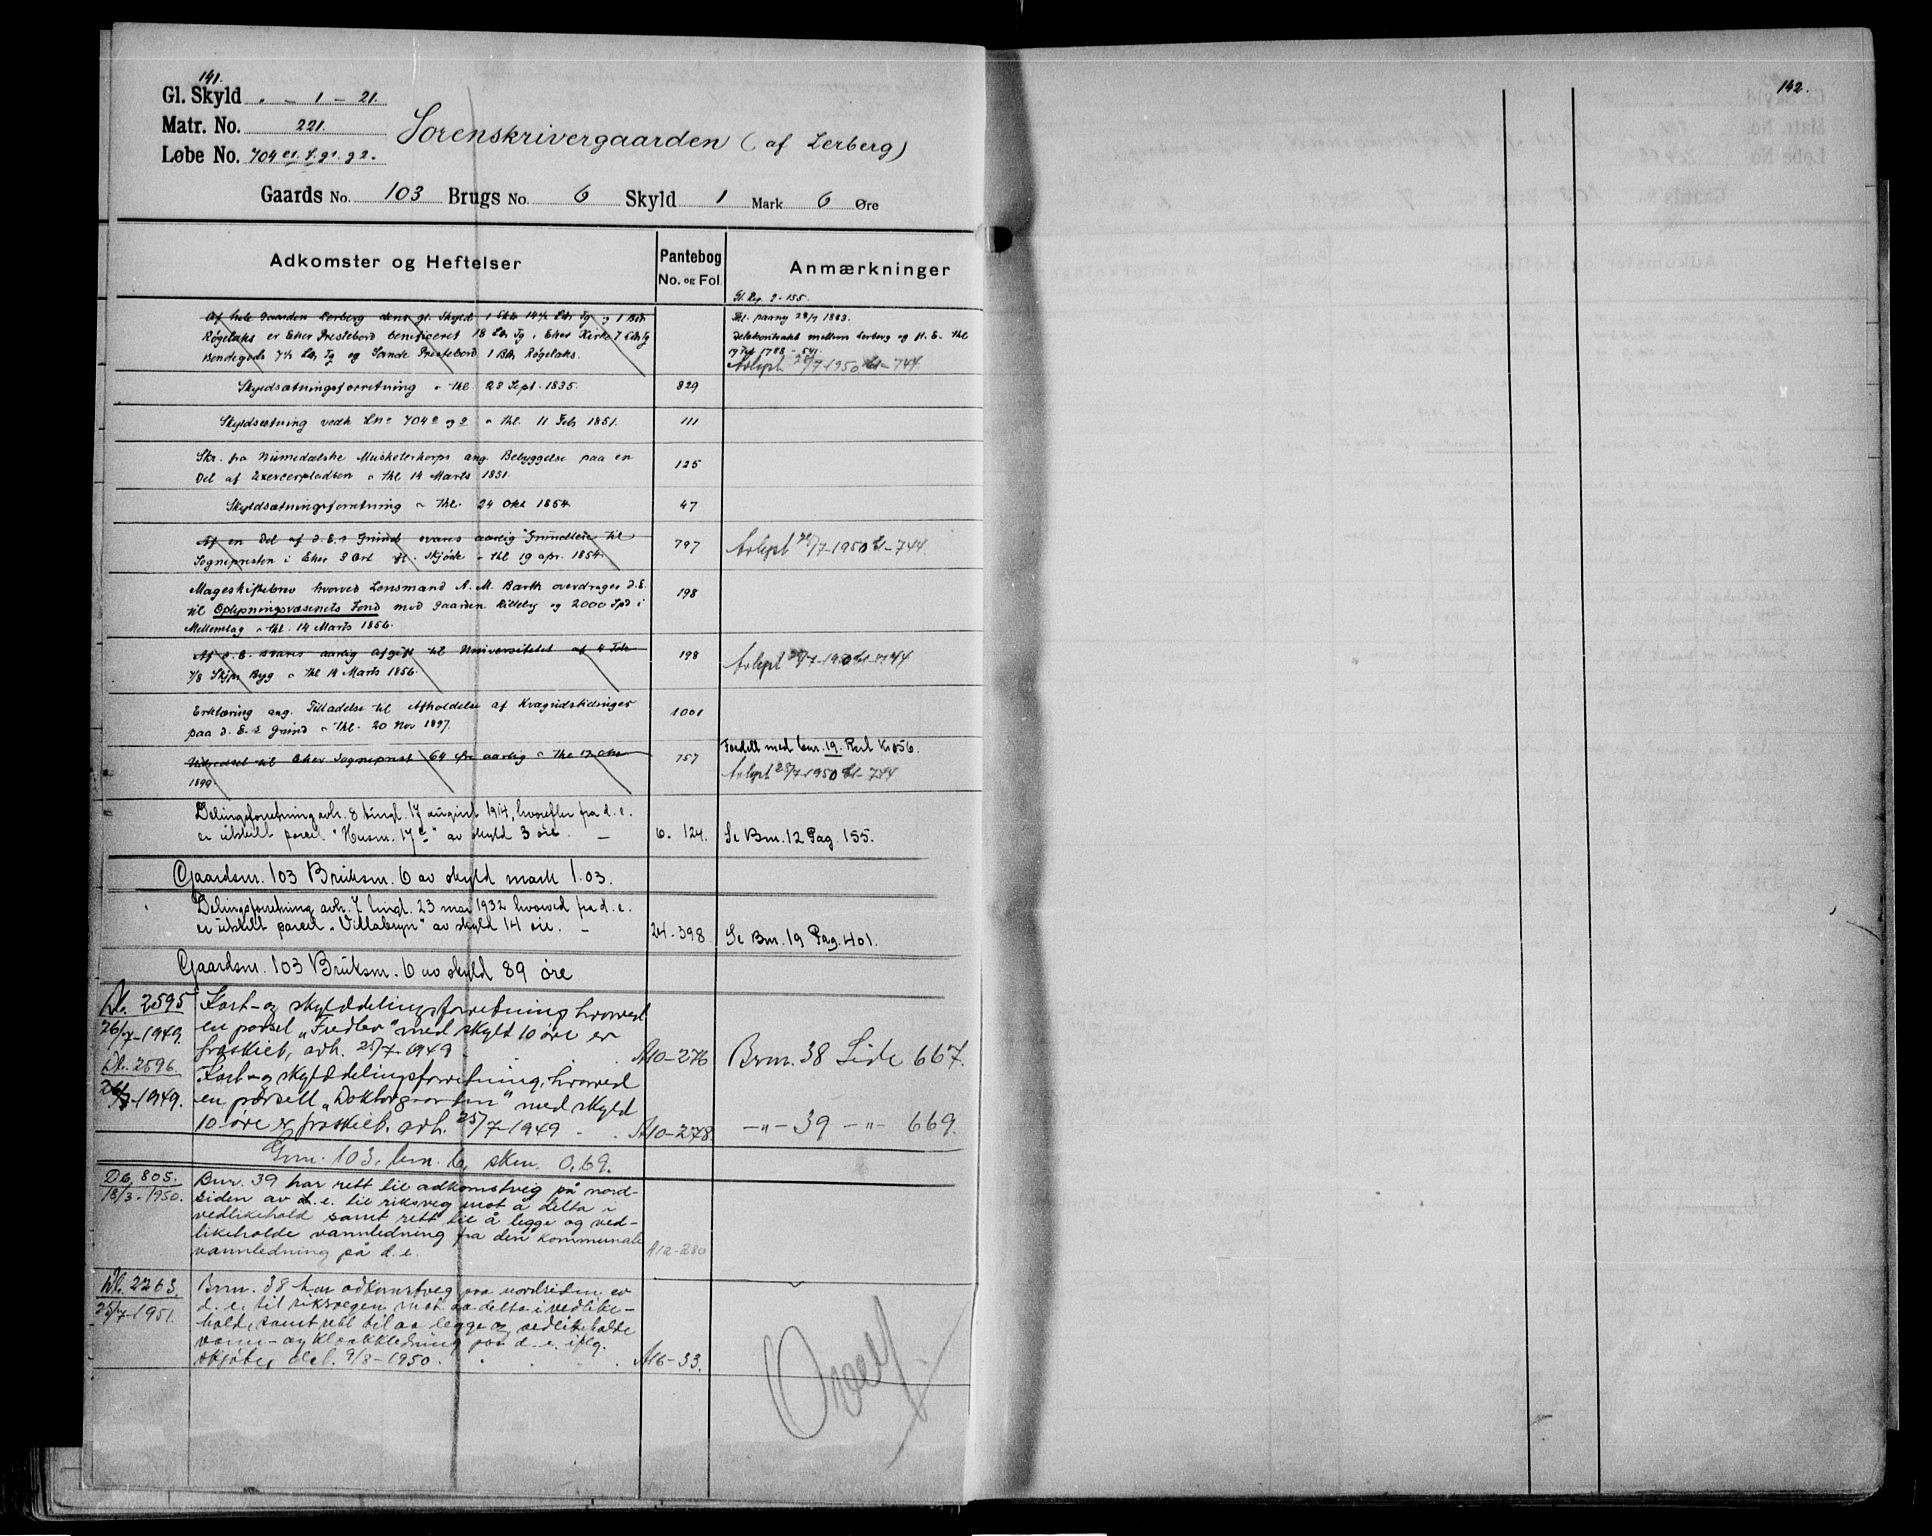 141.
Gl. Skyld " - 1 - 21.
Matr. No. 221.
Løbe No. 704 e1. f. g1. g2.
Sorenskrivergaarden (af Lerberg)
Gaards No. 103 Brugs No. 6 Skyld 1 Mark 6 Øre
Adkomster og Heftelser
Pantebog
No. og Fol.
Anmærkninger
Gl. Reg. 9-155.
Af hele Gaarden Lerberg dens gl. Skyld 1 Skp 14½ Lb Tg og 1 Bdt
Røgelaks er Eker Prestebord beneficeret 18 Lb Tg, Eker Kirke 7 Lb Tg
Bondegods 7½ Lb Tg og Sande Prestebord 1 Bdt Røgelaks.
Thl. paany 28/7 1883.
Delekontrakt mellem Lerberg og H. E. thl
1788 - 541.
Avlyst 28/7-1950 - 744
Skyldsætningsforretning " thl. 28 Sept. 1835.
829
Skyldsætning vedk Lno 704 e og g " thl. 11 Feb 1851.
111
Skr. fra Numedalske Musketerkorps ang. Bebyggelse paa en
Del af Exercerpladsen " thl 14 Marts 1851.
125
Skyldsætningsforretning " thl. 24 Okt 1854.
47
Af en Del af d. E.s Grund svares aarlig Grundleie til
Sognepresten i Eker 3 Ort ifl. Skjøde " thl 19 apr. 1854.
797
Avlyst 28/7-1950 - 744.
Mageskiftebrev hvorved Lensmand A. M. Barth overdrager d. E.
til Oplysningsvæsenets Fond mod Gaarden Killeby og 2000 Spd i
Mellemlag " thl. 14 Marts 1856.
198
Af d. E. svares aarlig Afgift til Universitetet af 4 Tdr
⅞ Skjpr Byg " thl 14 Marts 1856.
198
Avlyst 28/7-1950 - 744
Erklæring ang. Tilladelse til Afholdelse af Kvægudstillinger
paa d. E.s Grund " thl. 20 Nov 1897.
1001
Udredsel til Eker Sogneprest 64 Øre aarlig " thl 17 Okt
1899.
757
Fordelt med bnr. 19. Rest Kr. 0.56.
Avlyst 28/7-1950 - 744
Delingsforretning avh. 8 tingl. 17 august 1914, hvorefter fra d. e.
er utskilt parcel "Husm. 17 c" av skyld 3 øre. —
6. 124.
Se Bnr. 12 Pag. 155.
Gaardsnr. 103 Bruksnr. 6 av skyld mark 1.03.
Delingsforretning avh. 7 tingl. 23 mai 1932 hvorved fra d. e.
er utskilt parcel "Villabyn" av skyld 14 øre. —
24-398
Se Bnr. 19 Pag. 401.
Gaardsnr. 103 Bruksnr. 6 av skyld 89 øre
Db. 2595
26/7-1949.
Kart- og skylddelingsforretning hvorved
en parsel "Fredlev" med skyld 10 øre er
fraskilt, avh. 25/7-1949
A10-276
Brnr. 38 Side 667.
Db. 2596.
26/7-1949.
Kart- og skylddelingsforretning, hvorved
en parsell "Doktorgarden" med skyld
10 øre er fraskilt, avh. 25/7-1949 . .
A10-278.
-"- 39 -"- 669.
Gnr. 103, bnr. 6, skm. 0,69.
Db. 805.
18/3-1950.
Bnr. 39 har rett til adkomstveg på nord-
siden av d. e. til riksveg mot å delta i
vedlikehold samt rett til å legge og ved-
likeholde vannledning fra den kommunale
vannledning på d. e.
A12-280
Db. 2263.
25/7-1951.
Brnr. 38 har adkomstveg paa nordsiden av
d. e. til riksvegen mot aa delta i vedlike-
hold, samt rett til aa legge og vedlikeholde
vann- og kloakkledning paa d. e. iflg.
skjøte, dat. 9/8-1950.
A16-33.
142.